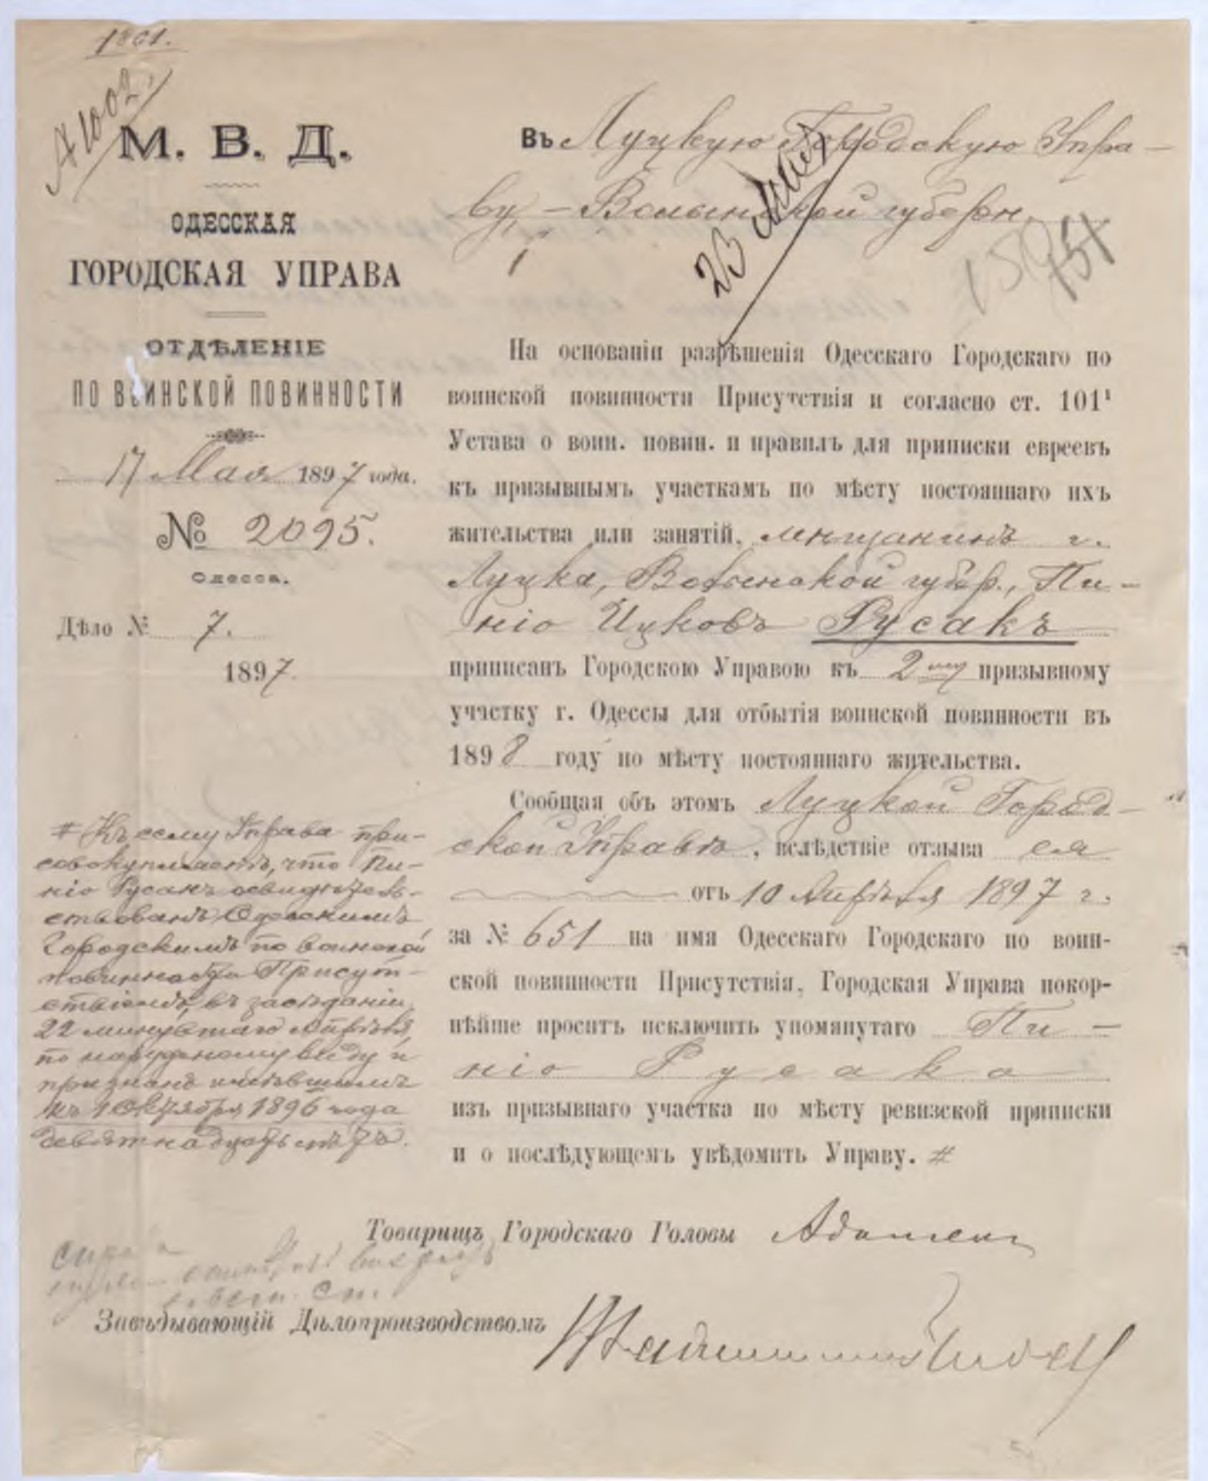 1861.
А1002.
М. В. Д.
ОДЕССКАЯ
ГОРОДСКАЯ УПРАВА
ОТДѢЛЕНІЕ
ПО ВОИНСКОЙ ПОВИННОСТИ
17 Мая 1897 года.
№ 2095.
Одесса.
Дѣло № 7.
1897.
Въ Луцкую Городскую Упра-
ву, – Волынской губерн.
23 Мая
159 151
На основаніи разрѣшенія Одесскаго Городскаго по
воинской повинности Присутствія и согласно ст. 101¹
Устава о воин. повин. и правилъ для приписки евреевъ
къ призывнымъ участкамъ по мѣсту постояннаго ихъ
жительства или занятій, мѣщанинъ г.
Луцка, Волынской губер., Пи-
ніо Ицковъ Русакъ
приписанъ Городскою Управою къ 2му призывному
участку г. Одессы для отбытія воинской повинности въ
1898 году по мѣсту постояннаго жительства.
Сообщая объ этомъ Луцкой Город-
ской Управѣ, вслѣдствіе отзыва ея
отъ 10 Апрѣля 1897 г.
за № 651 на имя Одесскаго Городскаго по воин-
ской повинности Присутствія, Городская Управа покор-
нѣйше проситъ исключить упомянутаго Пи-
ніо Русака
изъ призывнаго участка по мѣсту ревизской приписки
и о послѣдующемъ увѣдомить Управу. #
# Къ сему Управа при-
совокупляетъ, что Пи-
ніо Русакъ освидѣтель-
ствованъ Одесскимъ
Городскимъ по воинской
повинности Присут-
ствіемъ, въ засѣданіи
22 минувшаго Апрѣля,
по наружному виду и
признанъ имѣвшимъ
къ 1 Октября 1896 года
девятнадцать лѣтъ.
Товарищъ Городскаго Головы
Завѣдывающій Дѣлопроизводствомъ